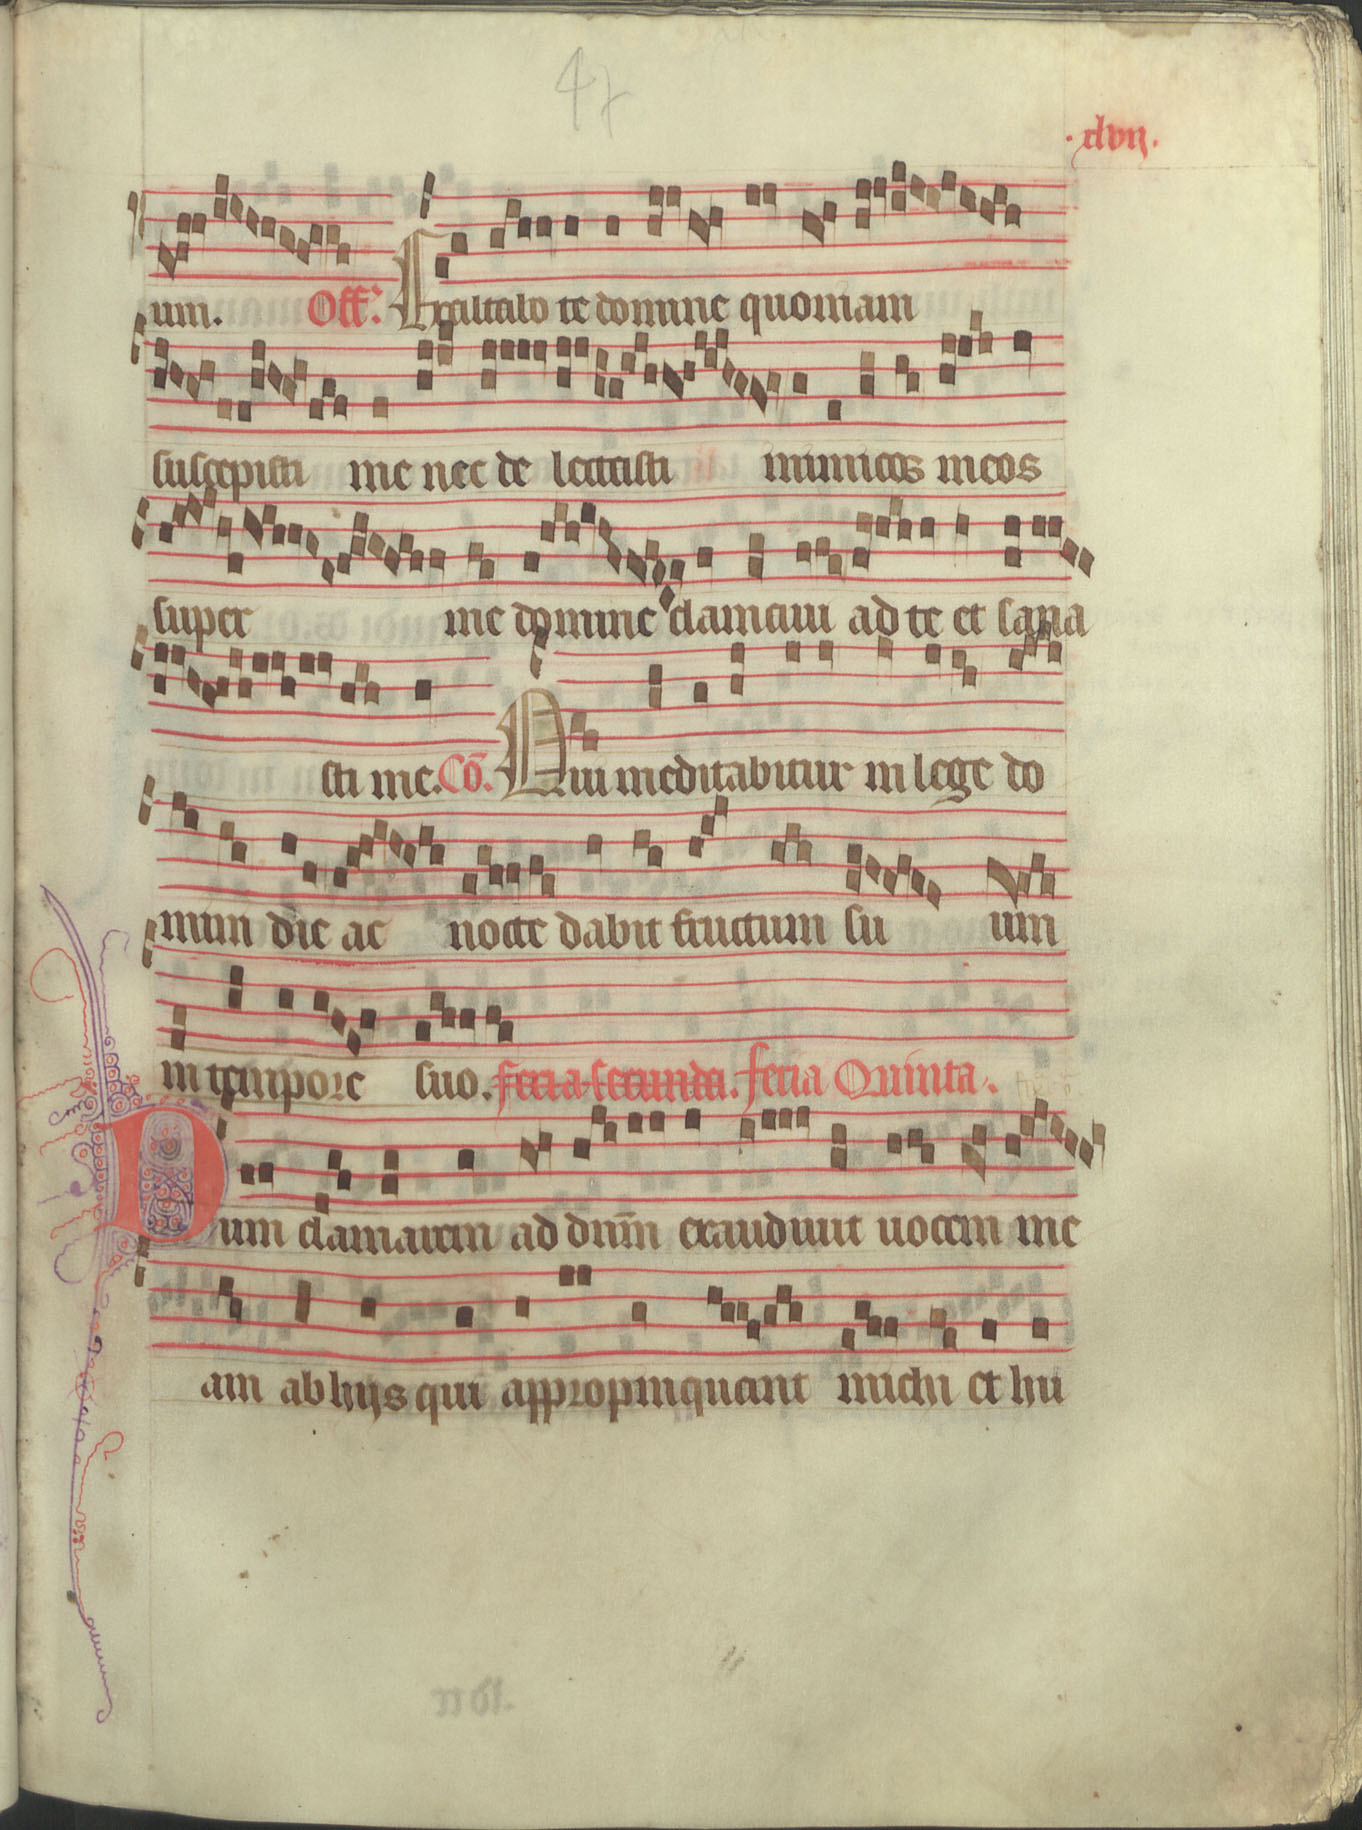 47
.clvij.
um. Off. Exaltabo te domine quoniam
suscepisti me nec de lectasti inimicos meos
super me domine clamaui ad te et sana
sti me. Cō. Qui meditabitur in lege do
mini die ac nocte dabit fructum su um
in tempore suo. feria secunda. feria Quinta.
Dum clamarem ad dn̄m exaudiuit uocem me
am ab hijs qui appropinquant michi et hu